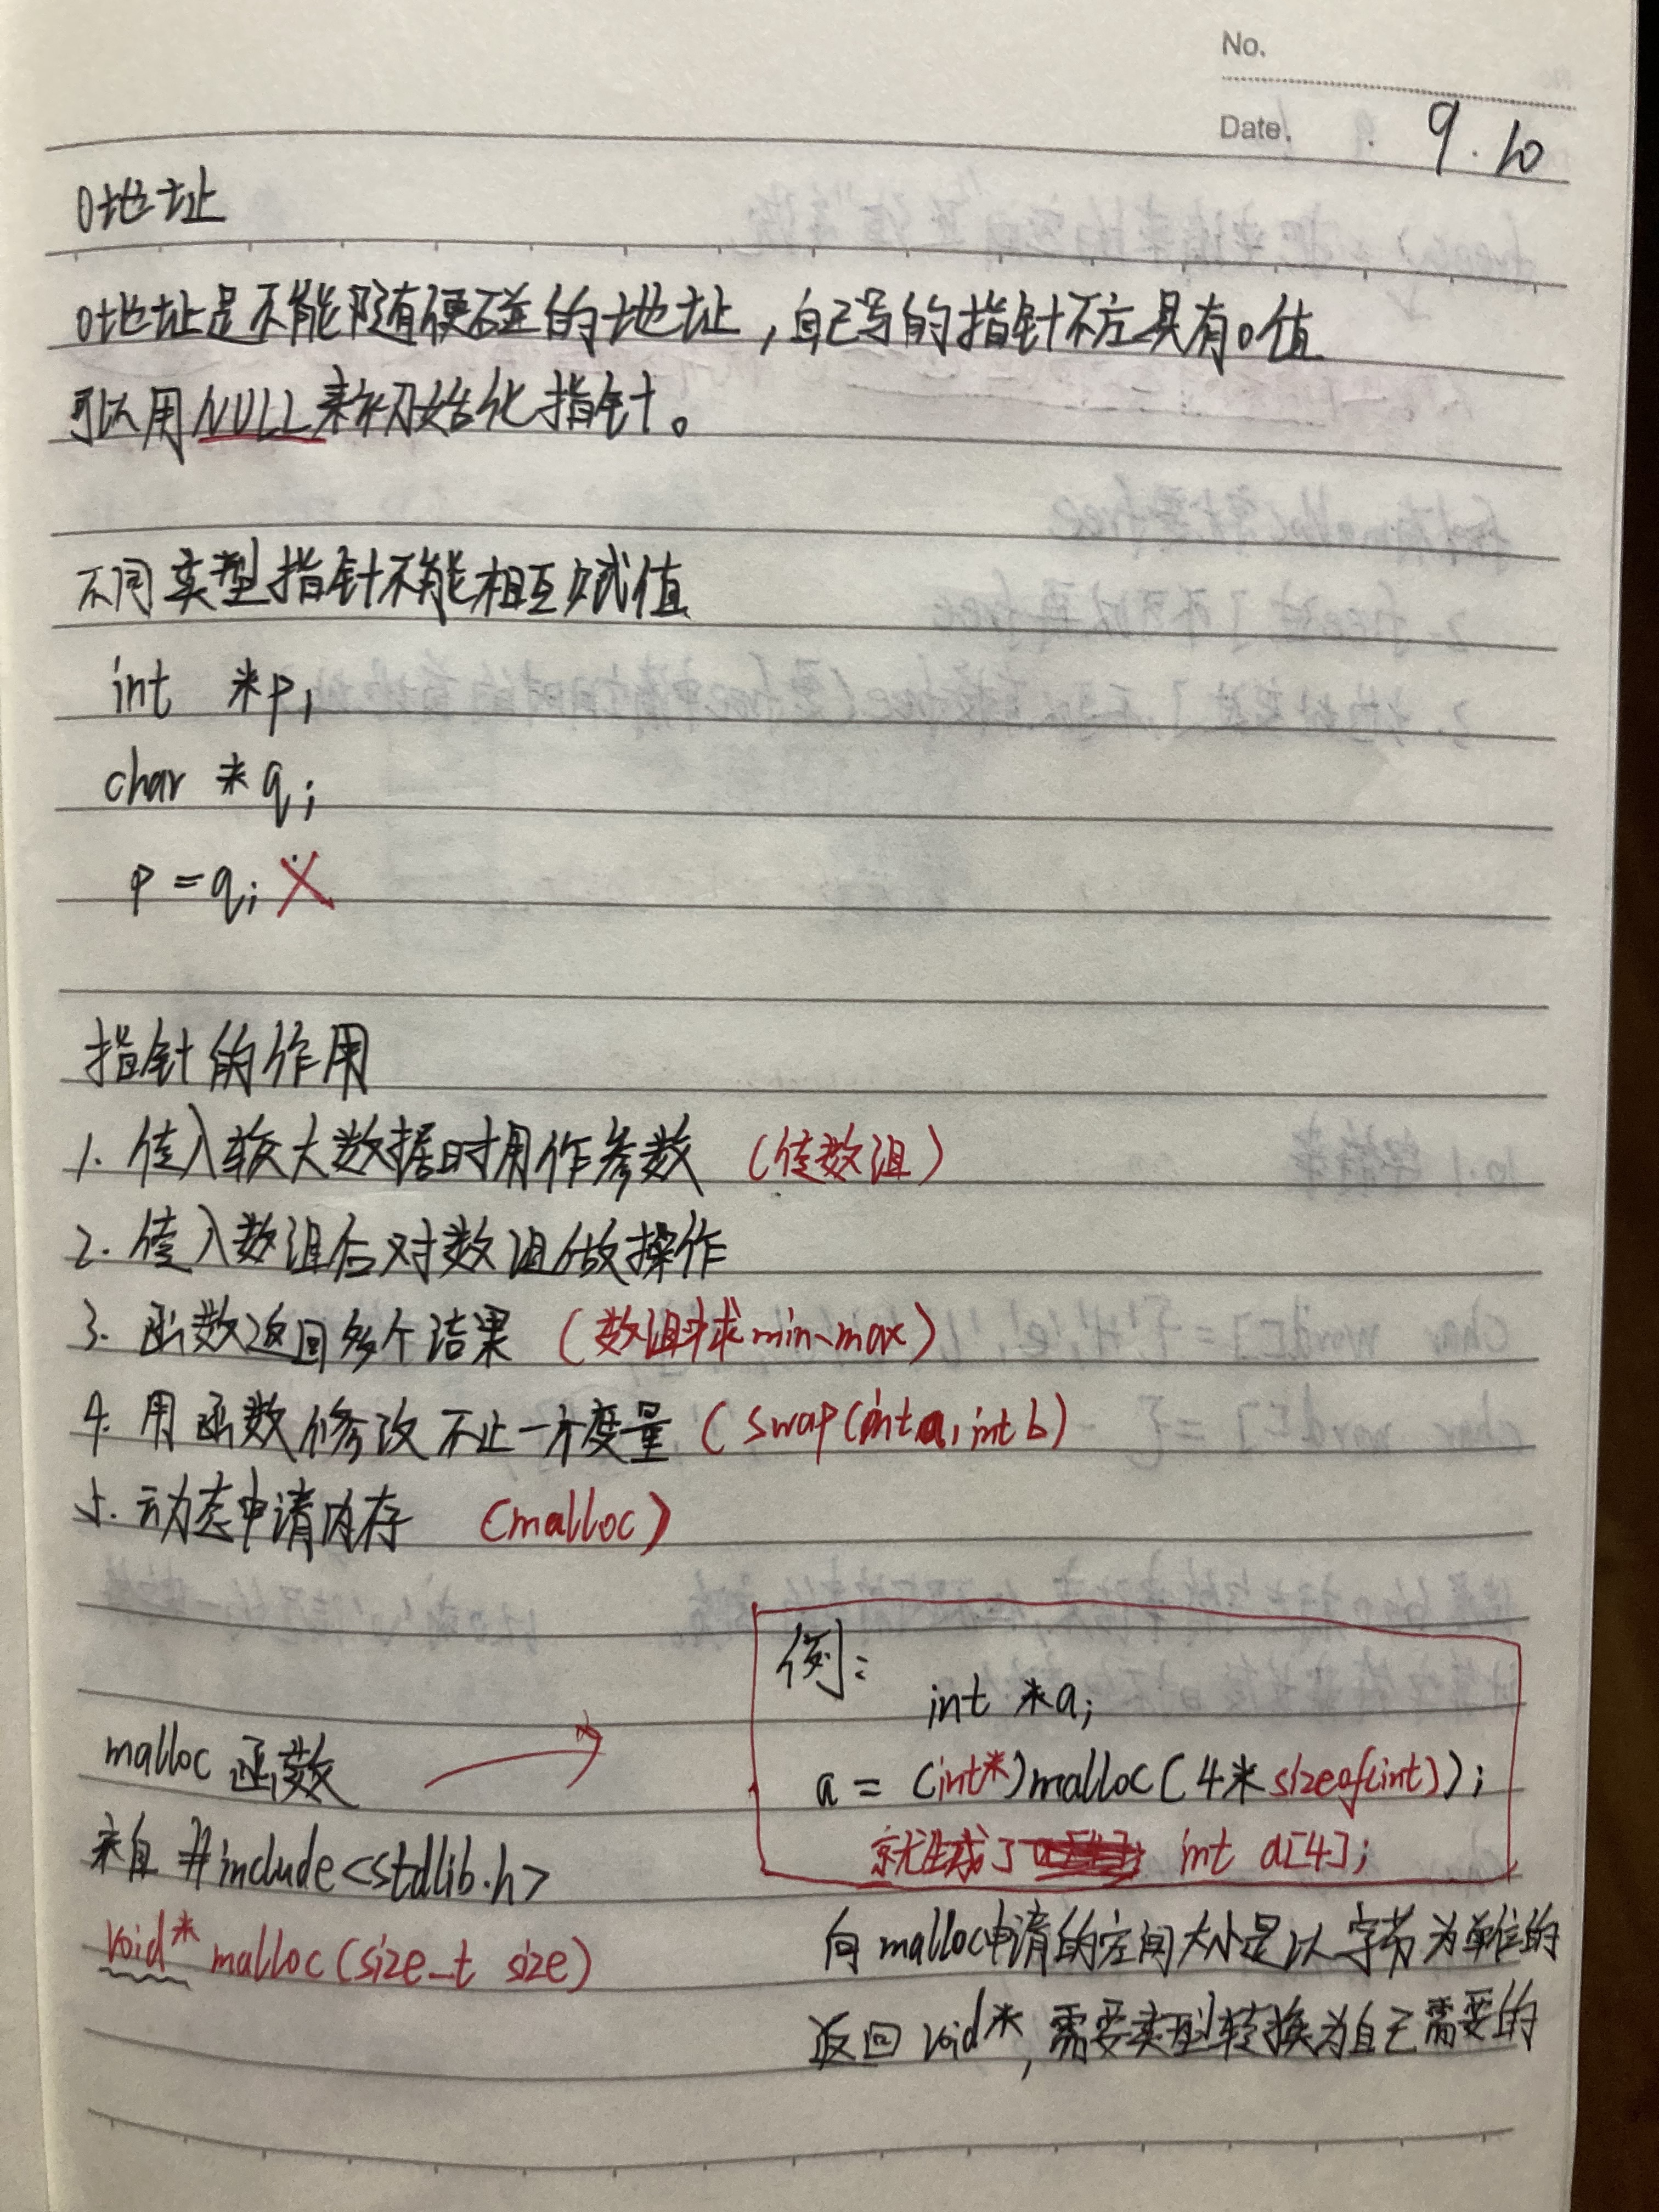 No.
Date. 9.10
0地址
0地址是不能随便碰的地址,自己写的指针不应具有0值
可以用NULL来初始化指针。
不同类型指针不能相互赋值
int *p,
char *q;
p=q; ×
指针的作用
1. 传入较大数据时用作参数 (传数组)
2. 传入数组后对数组做操作
3. 函数返回多个结果 (数组求min、max)
4. 用函数修改不止一个变量 (swap(int a, int b)
5. 动态申请内存 (malloc)
例:
int *a;
a = (int*)malloc(4*sizeof(int));
就生成了 int a[4];
malloc 函数
来自 #include<stdlib.h>
void* malloc(size_t size)
向malloc申请的空间大小是以字节为单位的
返回 void*, 需要类型转换为自己需要的